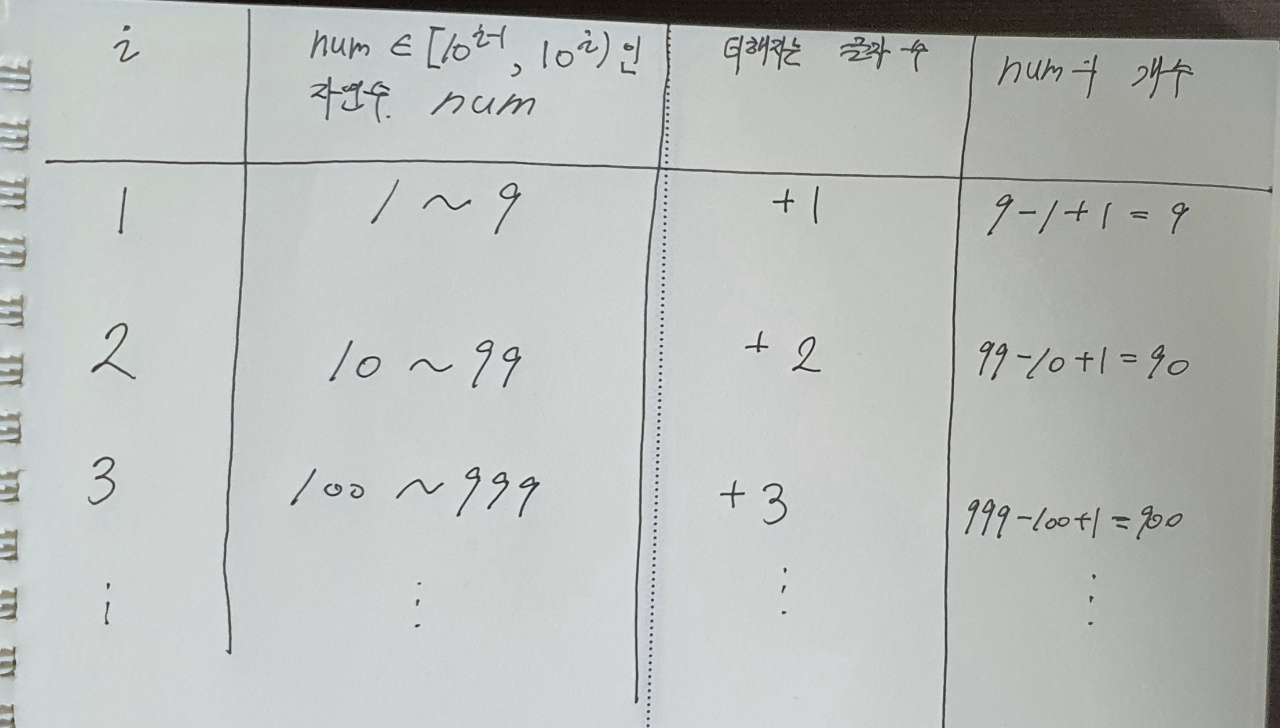 i
num ∈ [10^{i-1}, 10^i) 인
자연수 num
더해지는 글자 수
num수 개수
1
1 ~ 9
+1
9-1+1=9
2
10 ~ 99
+ 2
99-10+1=90
3
100 ~ 999
+3
999-100+1=900
⋮
⋮
⋮
⋮